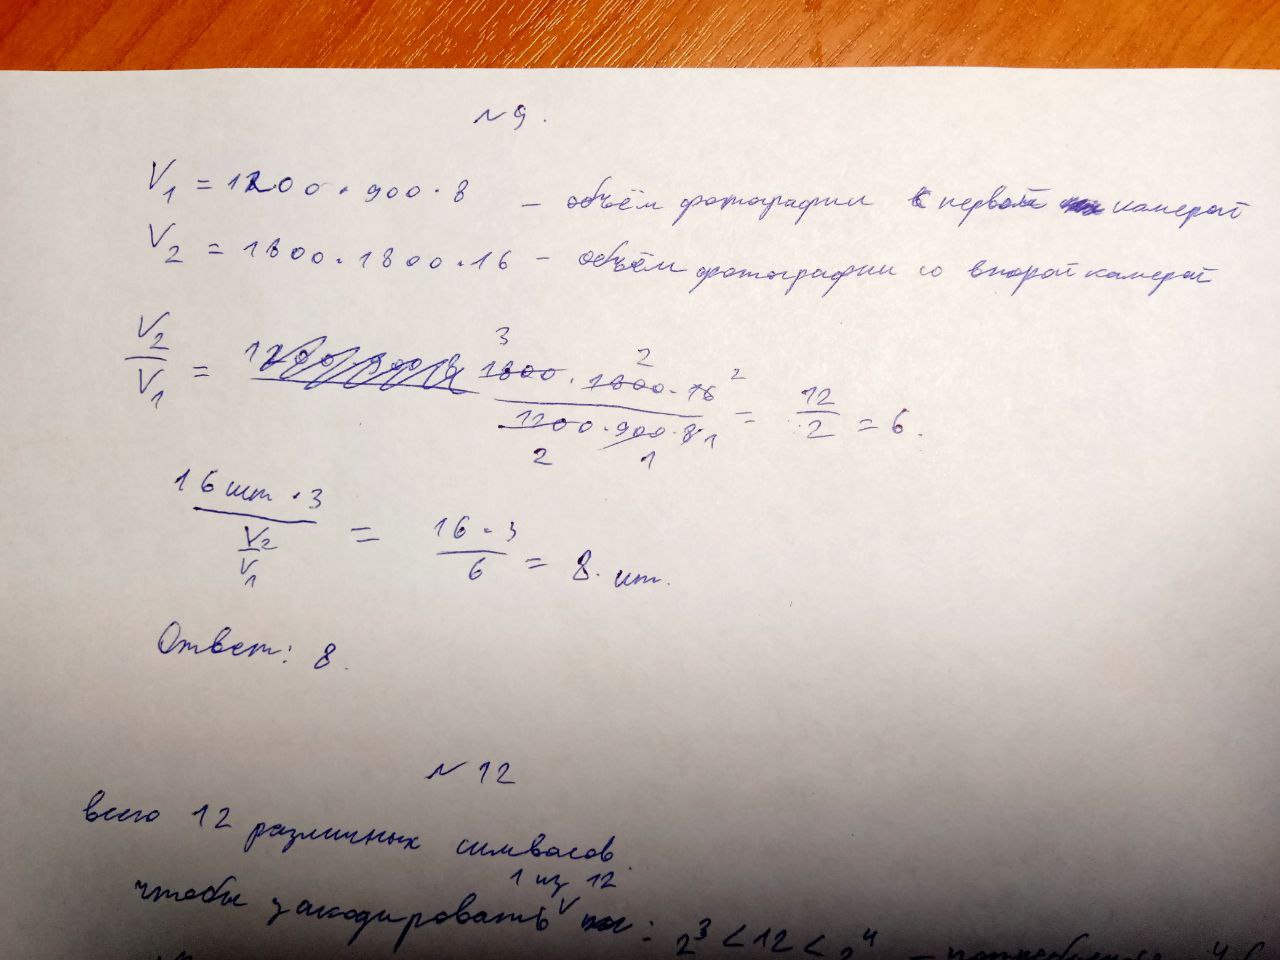 № 9.
V₁ = 1200 · 900 · 8 – объём фотографии с первой камерой
V₂ = 1800 · 1800 · 16 – объём фотографии со второй камерой
V₂/V₁ = (1800 · 1800 · 16)/(1200 · 900 · 8) = 12/2 = 6.
(16 шт · 3)/(V₂/V₁) = (16 · 3)/6 = 8. шт.
Ответ: 8.
№ 12
всего 12 различных символов.
чтобы закодировать 1 из 12 : 2³ < 12 < 2⁴ –